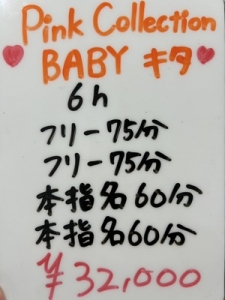 Pink Collection
BABY キタ
6h
フリー75分
フリー75分
本指名60分
本指名60分
¥32,000